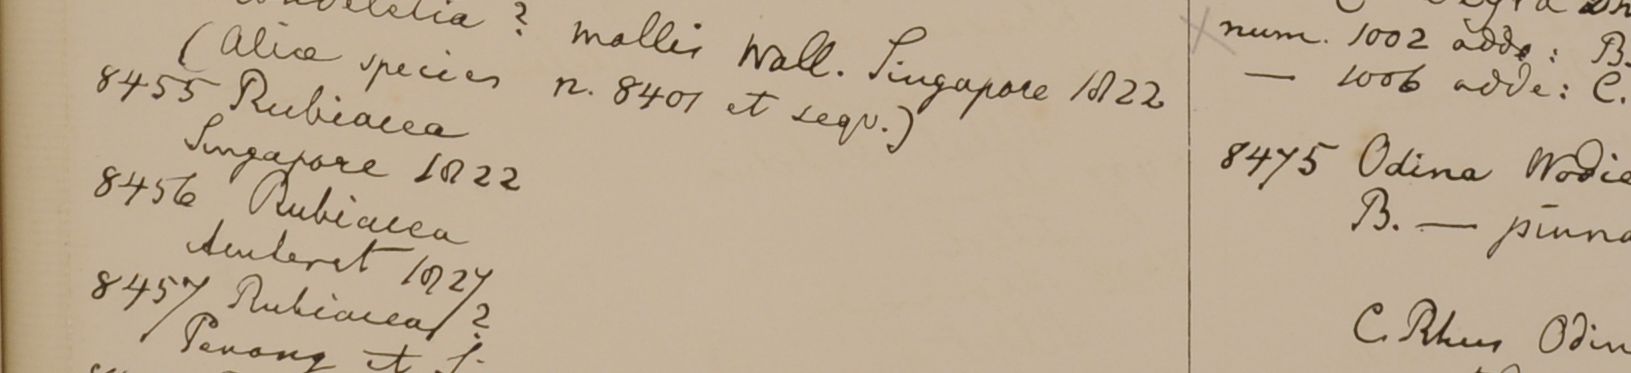 ? mollis Wall. Singapore 1822
(Aliæ species n. 8401 et sequ.)
8455 Rubiacea
Singapore 1822
8456 Rubiacea
Amherst 1827
8457 Rubiacea?
Penang et S.
num. 1002 adde: B.
— 1006 adde: C.
8475 Odina Wodie
B. — pinna
C. Rhus Odin